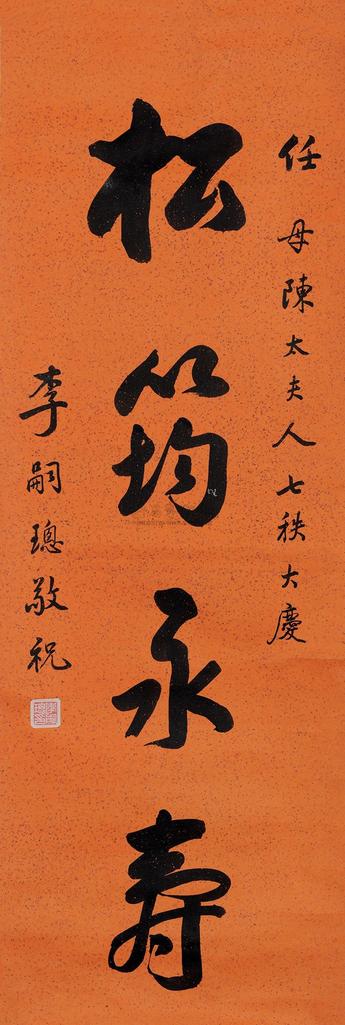 任母陳太夫人七秩大慶
松筠永壽
李嗣璁敬祝